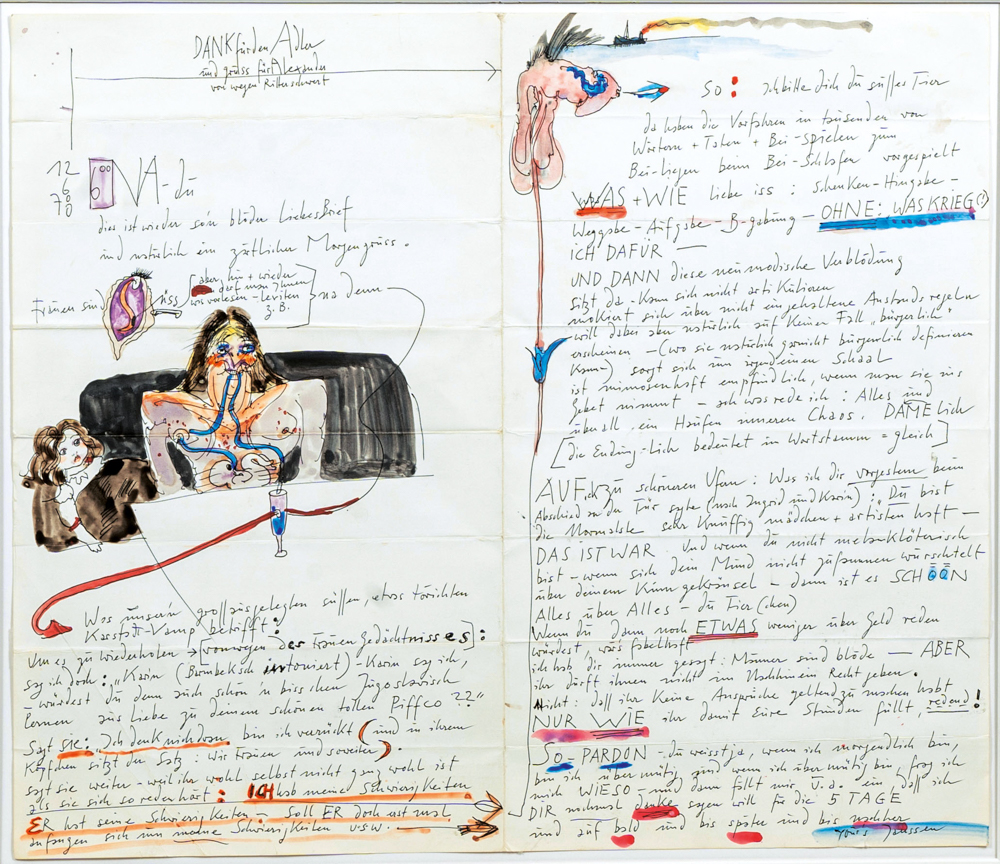 DANK für den Adler
und grüss für Alexander
von wegen Ritterschwert
12
6
70
6 00
NA-du
dies ist wieder so'n blöder Liebesbrief
und natürlich ein zärtlicher Morgengruss.
Frauen sind süss
aber hin + wieder
darf man Ihnen
was vorlesen - Leviten
z.B.
na denn
Was unsern grossausgelegten süssen, etwas törichten
Karstadt-Vamp betrifft:
Um es zu wiederholen → [vonwegen des Frauen Gedächtnisses]:
sag ich doch: „Karin (Barmbeksch intoniert) - Karin sag ich,
würdest du denn auch schon 'n bisschen Jugoslavisch
lernen aus Liebe zu deinem schönen tollen Piffco ??"
Sagt sie: „Ich denk nich dran bin ich verrückt (und in ihrem
Köpfchen sitzt der Satz: wir Frauen und soweiter).
sagt sie weiter - weil ihr wohl selbst nicht ganz wohl ist
als sie sich so reden hört: ICH hab meine Schwierigkeiten
ER hat seine Schwierigkeiten. Soll ER doch erst mal
anfangen sich um meine Schwierigkeiten u.s.w.
So: Ich bitte dich du süsses Tier
da haben die Vorfahren in tausenden von
Wörtern + Taten + Bei-Spielen zum
Bei-liegen beim Bei-Schlafen vorgespielt
WAS + WIE Liebe iss: Schenken - Hingabe -
Weggabe - Aufgabe - B-gabung - OHNE: WAS KRIEG (?)
ICH DAFÜR
UND DANN diese neumodische Verblödung
sitzt da - kann sich nicht artikulieren
mokiert sich über nicht eingehaltene Anstandsregeln
will dabei aber natürlich auf keinen Fall „bürgerlich"
erscheinen - (wo sie natürlich garnicht bürgerlich definieren
kann) sorgt sich um irgendeinen Schaal
ist mimosenhaft empfindlich, wenn man sie ins
Gebet nimmt - ach was rede ich: Alles und
überall ein Haufen inneren Chaos. DÄMElich
[die Endung -lich bedeutet im Wortstamm = gleich]
AUF zu schöneren Ufern: Was ich dir vorgestern beim
Abschied an der Tür sagte (nach Ingrid und Karin): „Du bist
die Normalste sehr knuffig mädchen + artistenhaft -
DAS IST WAR. Und wenn du nicht melanklöterisch
bist - wenn sich dein Mund nicht zusammen würschtelt
über deinem Kinngekräusel - dann ist es SCHÖÖN
Alles über Alles - du Tier(chen)
Wenn du dann noch ETWAS weniger über Geld reden
würdest, wär's fabelhaft
ich hab dir immer gesagt: Männer sind blöde - ABER
ihr dürft ihnen nicht im Nachhinein Recht geben.
Nicht: dass ihr keine Ansprüche geltend zu machen habt
NUR WIE ihr damit Eure Stunden füllt, redend!
So - PARDON - du weisst ja, wenn ich morgendlich bin,
bin ich übermütig und wenn ich übermütig bin, frag ich
mich WIESO - und dann fällt mir u.a. ein dass ich
DIR nochmal danke sagen will für die 5 TAGE
und auf bald und bis später und bis nachher
Yours Janssen